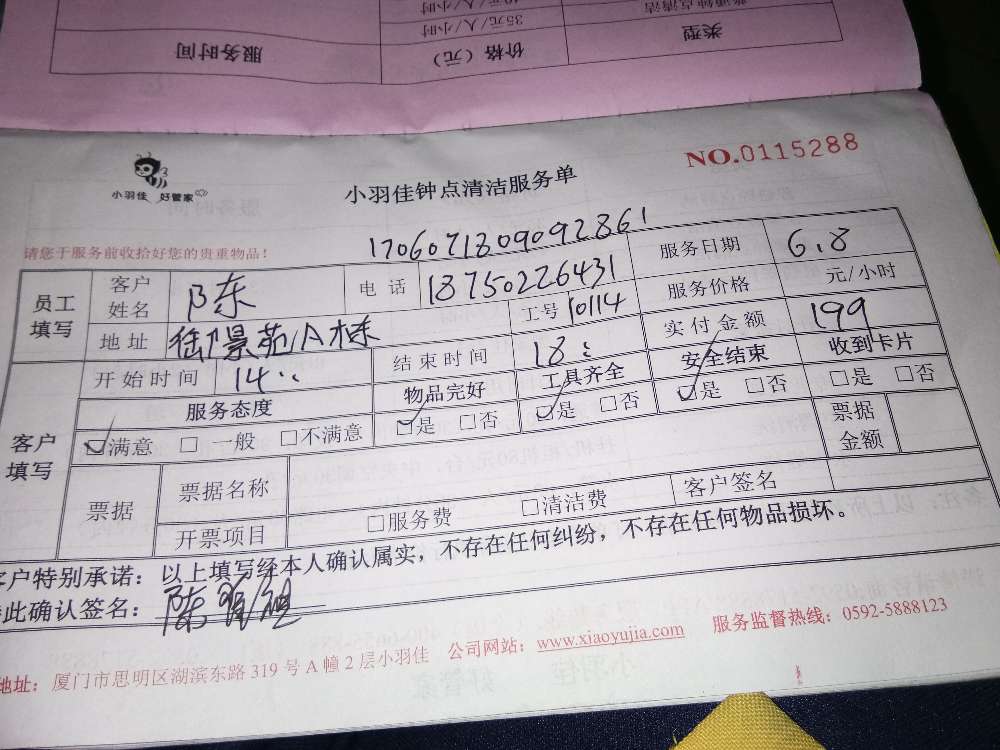 普通钟点清洁
40元/人/小时
35元/人/小时
类型
价格（元）
服务时间
NO.0115288
小羽佳 好管家
小羽佳钟点清洁服务单
请您于服务前收拾好您的贵重物品！
1706071809092861
员工填写
客户姓名 陈 电话 18750226431 服务日期 6.8
地址 御景苑/A栋 工号 10114 服务价格 元/小时
开始时间 14: 结束时间 18: 实付金额 199
客户填写
服务态度 物品完好 工具齐全 安全结束 收到卡片
☑满意 □一般 □不满意 ☑是 □否 ☑是 □否 ☑是 □否 □是 □否
票据 票据名称 票据金额
开票项目 □服务费 □清洁费 客户签名
客户特别承诺：以上填写经本人确认属实，不存在任何纠纷，不存在任何物品损坏。
特此确认签名：陈
地址：厦门市思明区湖滨东路319号A幢2层小羽佳 公司网站：www.xiaoyujia.com 服务监督热线：0592-5888123